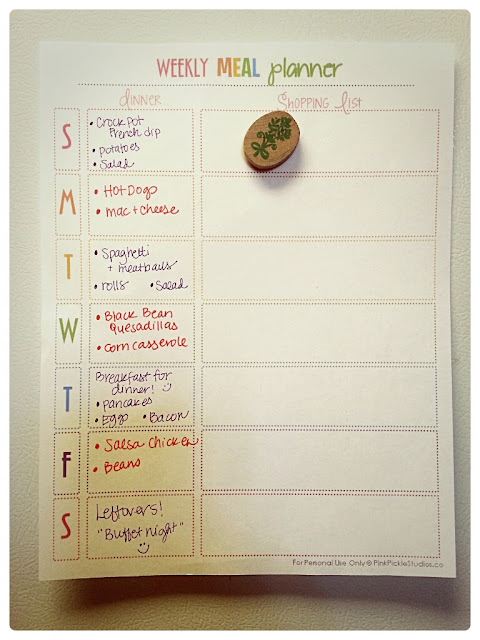 WEEKLY MEAL planner
dinner
Shopping List
S
• Crockpot
French dip
• potatoes
• Salad
M
• Hot Dogs
• mac + cheese
T
• Spaghetti
+ meatballs
• rolls • Salad
W
• Black Bean
Quesadillas
• corn casserole
T
Breakfast for
dinner!
• Pancakes
• Eggs • Bacon
F
• Salsa Chicken
• Beans
S
Leftovers!
"Buffet night"
For Personal Use Only © PinkPickleStudios.co